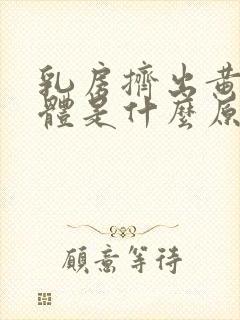 乳房擠出黃
體是什麼原
願意等待